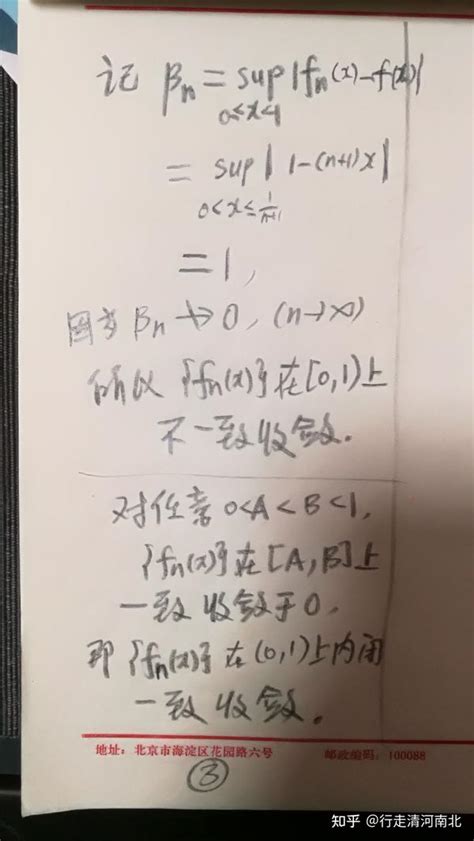 记 βₙ = sup|fₙ(x)-f(x)|
0≤x<1
= sup| 1-(n+1)x|
0<x≤1/(n+1)
= 1,
因为 βₙ ↛ 0, (n→∞)
所以 {fₙ(x)} 在[0,1)上
不一致收敛.
对任意 0<A<B<1,
{fₙ(x)} 在[A,B]上
一致收敛于0,
即 {fₙ(x)} 在(0,1)上内闭
一致收敛.
地址: 北京市海淀区花园路六号 邮政编码: 100088
③
知乎 @行走清河南北